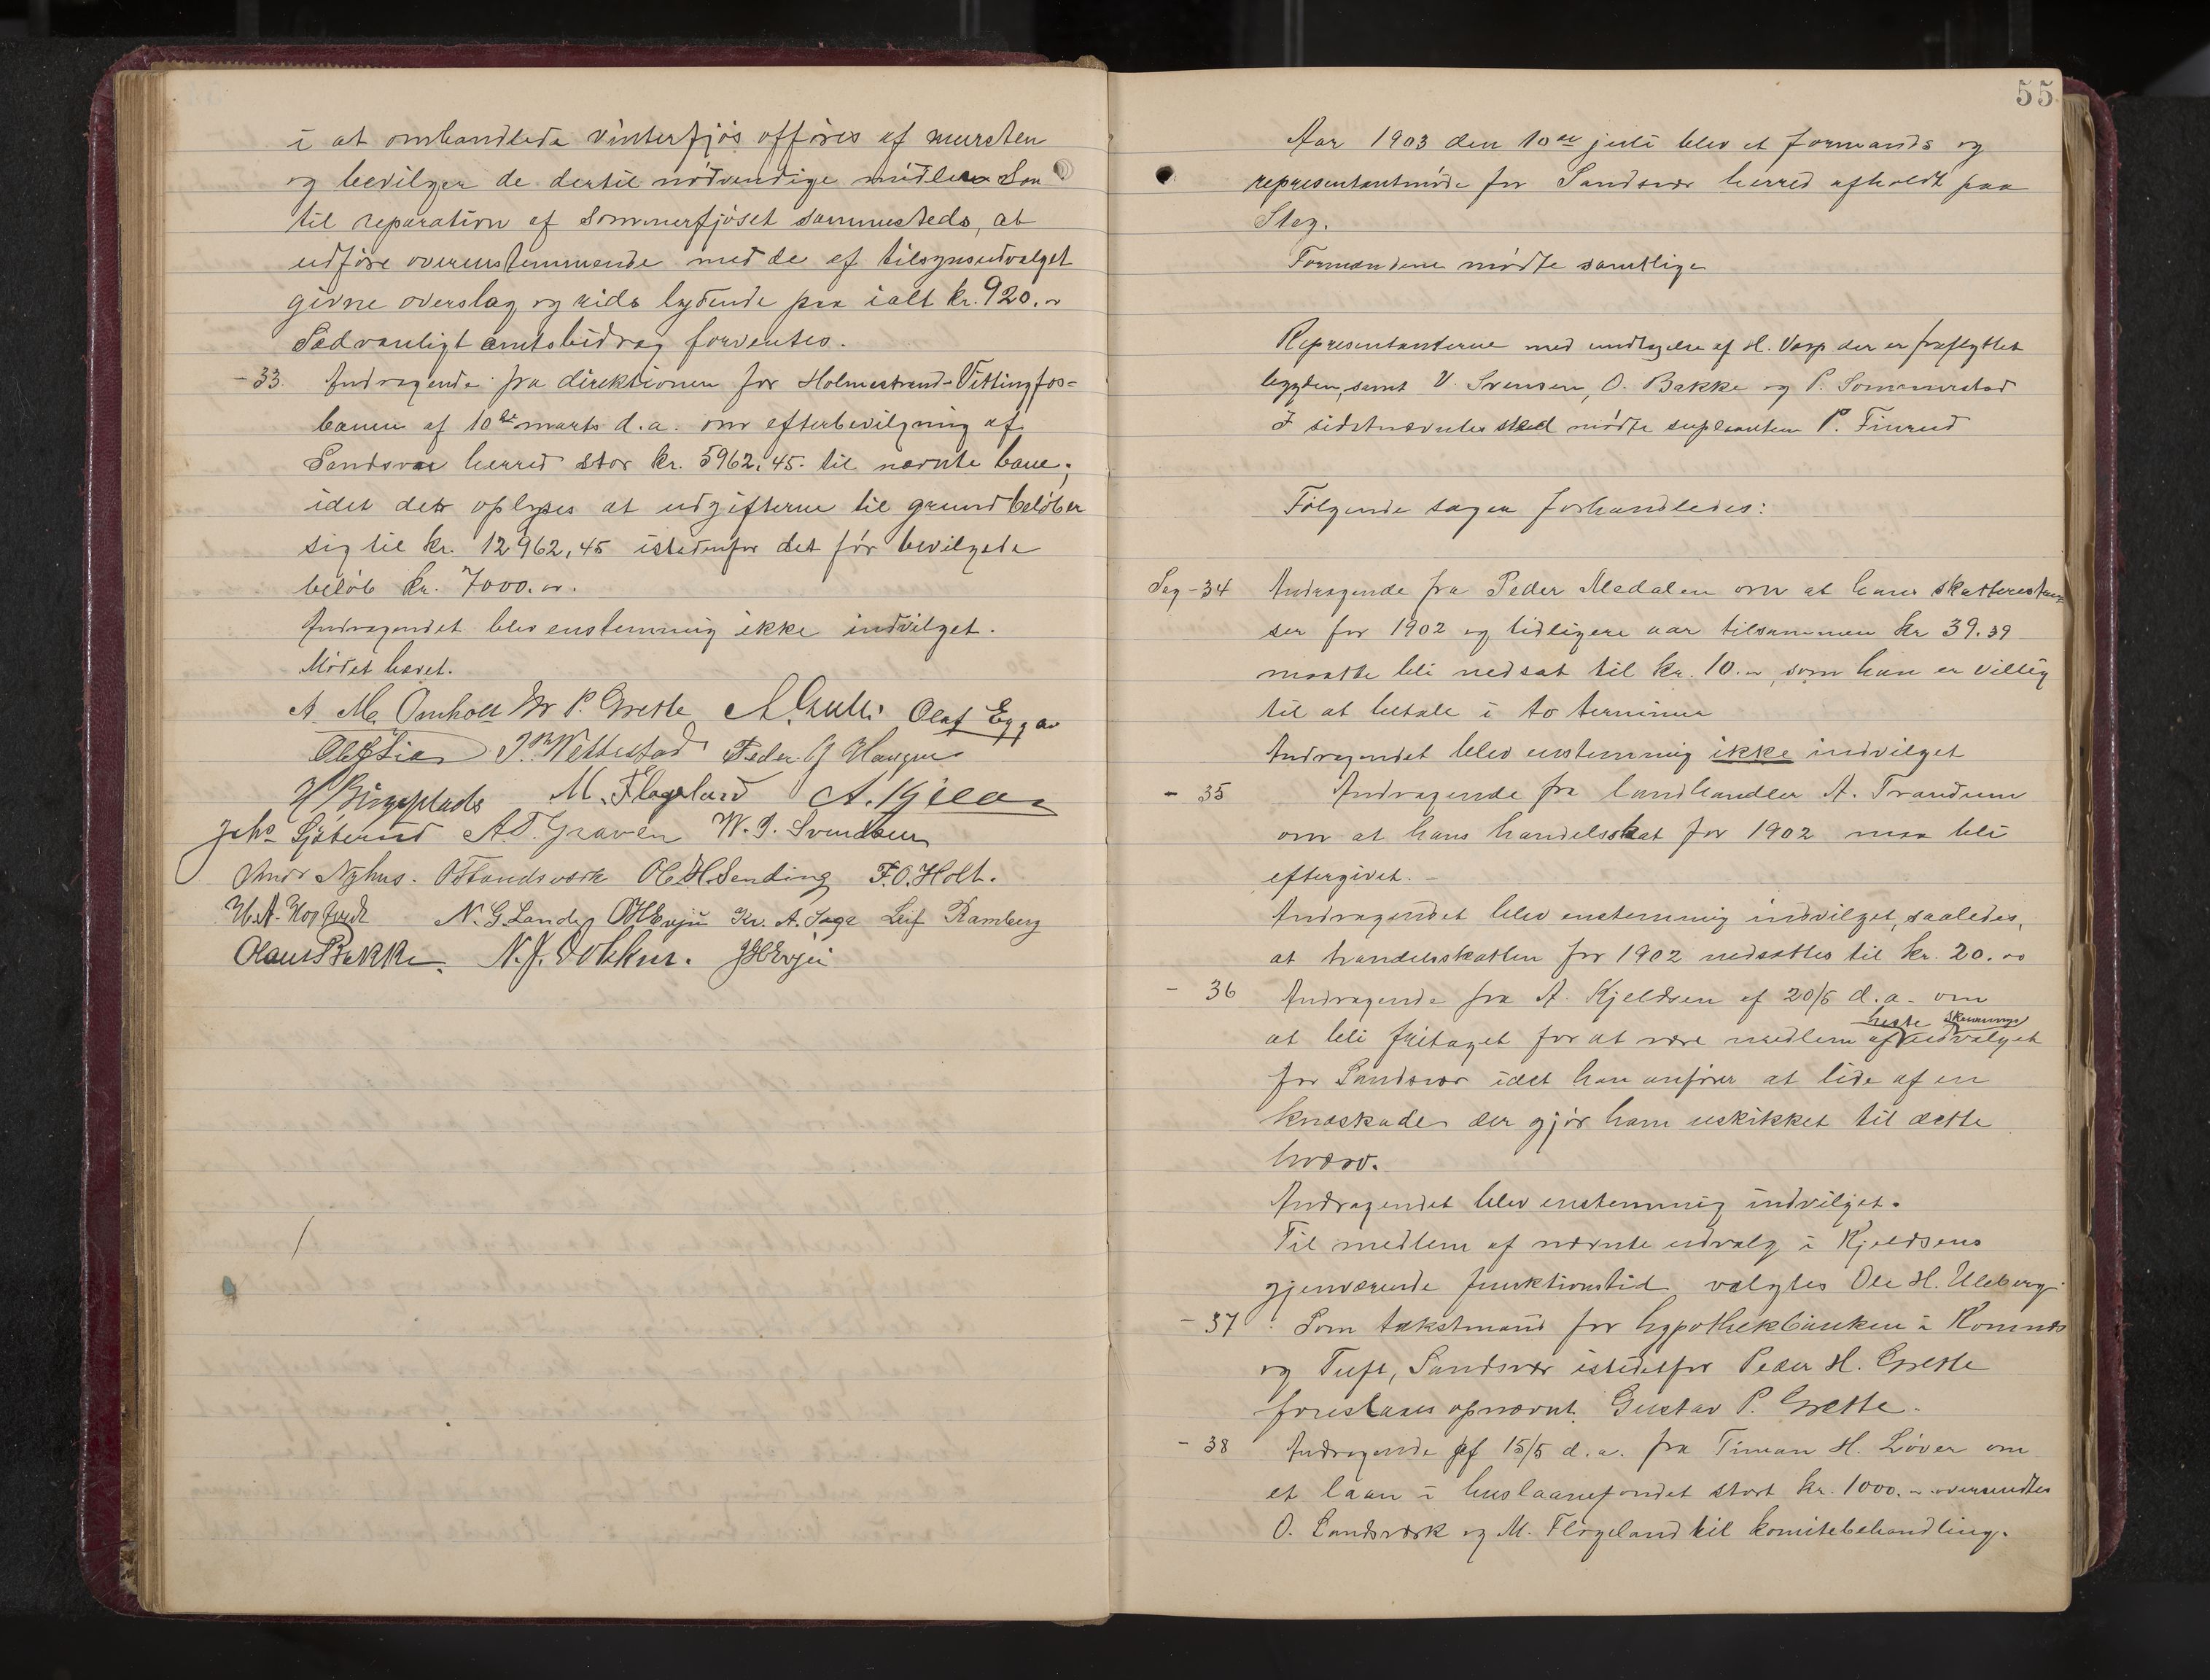 i at omhandlede vinterfjøs opføres af mursten
og bevilger de dertil nødvendige midler Som
til reparation af Sommerfjøset sammesteds, at
udføre overensstemmende med de af tilsynsudvalget
givne overslag og rids lydende paa ialt kr. 920.00
Sædvanligt amtsbidrag forventes.
- 33. Andragende fra direktionen for Holmestrand-Vittingfos=
banen af 10de marts d.a. om efterbevilgning af
Sandsvær herred stor kr. 5962,45. til nævnte bane;
idet det oplyses at udgifterne til grund beløber
sig til kr. 12962,45 istedenfor det før bevilgede
beløb kr. 7000.00.
Andragendet blev enstemmig ikke indvilget.
Mødet hævet.
A. M. Omholt P. Grette Olaf Eggar
Ole Lia J. P. Wettestad Peder G Haugen
M. Flageland A. Kjelsen
Johs Sjøterud A.T. Graven W. J. Svendsen
Andr Nyhus. O Landsværk Ole H. Sending F.O. Holt.
N. G. Lande OHEvju Kr. A. Saga Leif Ramberg
Olaus Bakke. N.J. Dokken. JHEvju
55
Aar 1903 den 10de juli blev et formands og
representantmøde for Sandsvær herred afholdt paa
Steg.
Formændene mødte samtlige
Representanterne med undtagelse af H. Vasp der er fraflyttet
bygden, samt V. Svensen, O. Bakke og P. Sommerstad
I sidstnævntes sted mødte suplianten P. Finrud
Følgende sager forhandledes:
Sag - 34 Andragende fra Peder Medalen om at hans skatterestan=
ser for 1902 og tidligere aar tilsammen kr 39.39
maatte bli nedsat til kr. 10.00, som han er villig
til at betale i to terminer
Andragendet blev enstemmig ikke indvilget
- 35 Andragende fra landhandler A. Trandum
om at hans handelsskat for 1902 maa bli
eftergivet. -
Andragendet blev enstemmig indvilget, saaledes,
at handelsskatten for 1902 nedsættes til kr. 20.00
- 36 Andragende fra A. Kjeldsen af 20/5 d.a. om
heste skuenings
at bli fritaget for at være medlem af udvalget
for Sandsvær idet han anfører at lide af en
knæskade der gjør ham uskikket til dette
hværv.
Andragendet blev enstemmig indvilget.
Til medlem af nævnte udvalg i Kjeldsens
gjenværende funktionstid valgtes Ole H. Ulleberg.
- 37 Som takstmand for hypothekbanken i Komnæs
og Tuft, Sandsvær istedetfor Peder H. Grette
foreslaaes opnævnt Gustav P. Grette.
- 38 Andragende af 15/5 d.a. fra Timan H. Løver om
et laan i huslaanefondet stort kr. 1000.00 oversendtes
O. Landsværk og M. Flageland til komitebehandling.